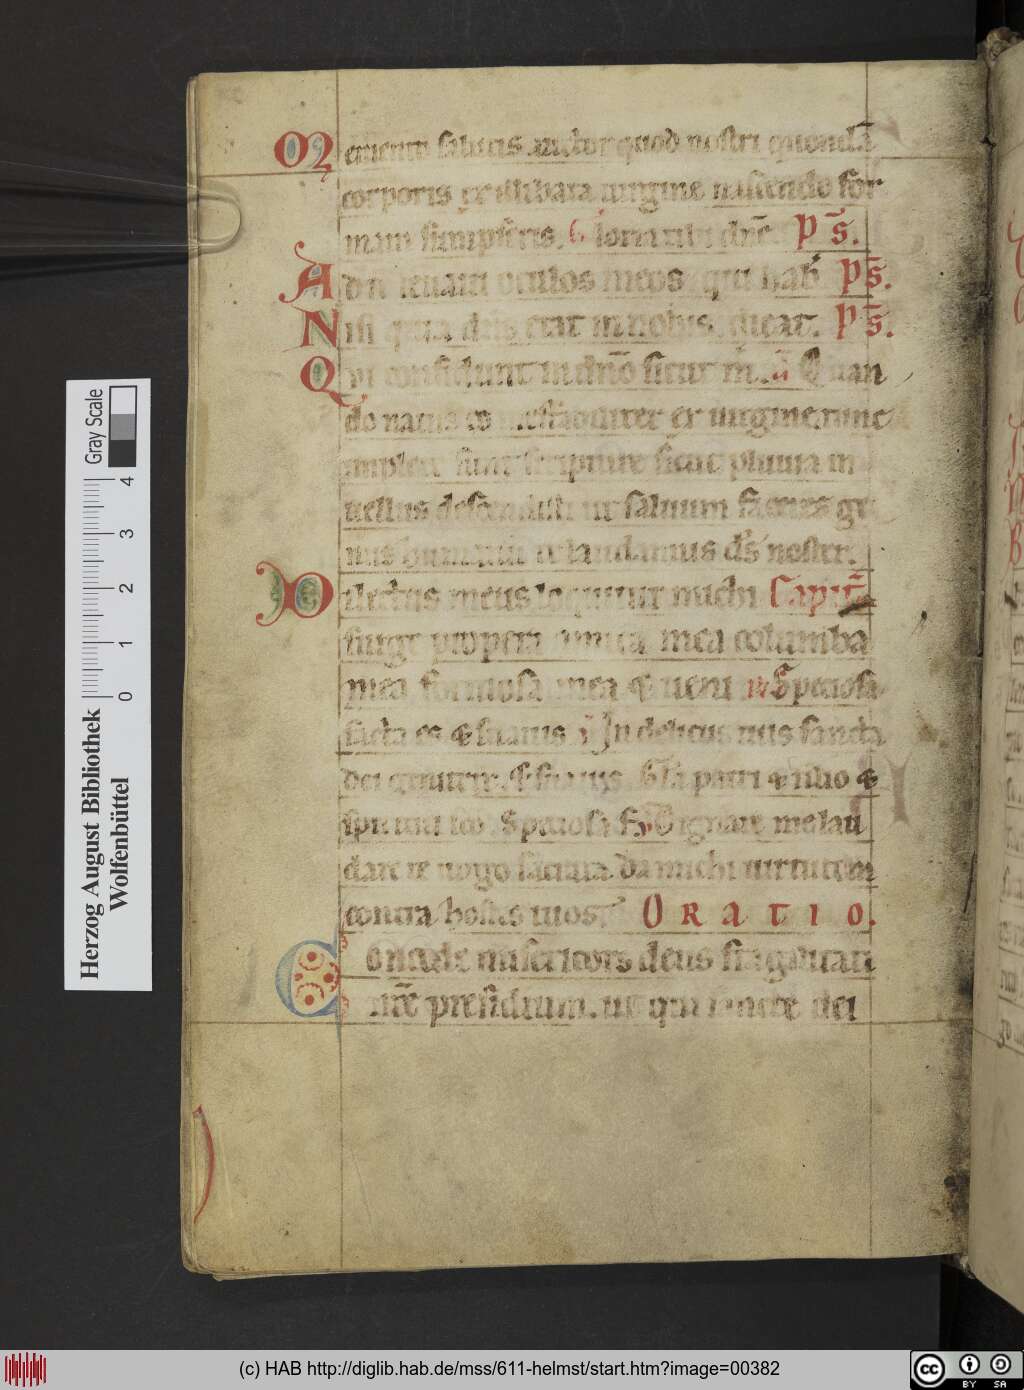 Memento salutis auctor quod nostri quondā
corporis ex illibata uirgine nascendo for
mam sumpseris. Gloria tibi dn̄e P s̄.
Ad te leuaui oculos meos qui hab P s̄.
Nisi quia dn̄s erat in nobis dicat. P s̄.
Qui confidunt in dn̄o sicut m. ā Quan
do natus es ex uirgine tunc
implete sunt scripture sicut pluuia in
uellus descendisti ut saluum faceres ge
nus humanū te laudamus ds̄ noster.
Dilectus meus loquitur michi Capit̄
surge propera amica mea columba
mea formosa mea & ueni Speciosa
facta es & suauis In deliciis tuis sancta
dei genitrix. & suauis. Gl̄a patri & filio &
spiritui sco. Speciosa Dignare me lau
dare te uirgo sacrata da michi uirtutem
contra hostes tuos ORATIO.
Concede misericors deus fragilitati
nr̄e presidium. ut qui sancte dei
Herzog August Bibliothek
Wolfenbüttel
Gray Scale
0 1 2 3 4
(c) HAB http://diglib.hab.de/mss/611-helmst/start.htm?image=00382
cc BY SA